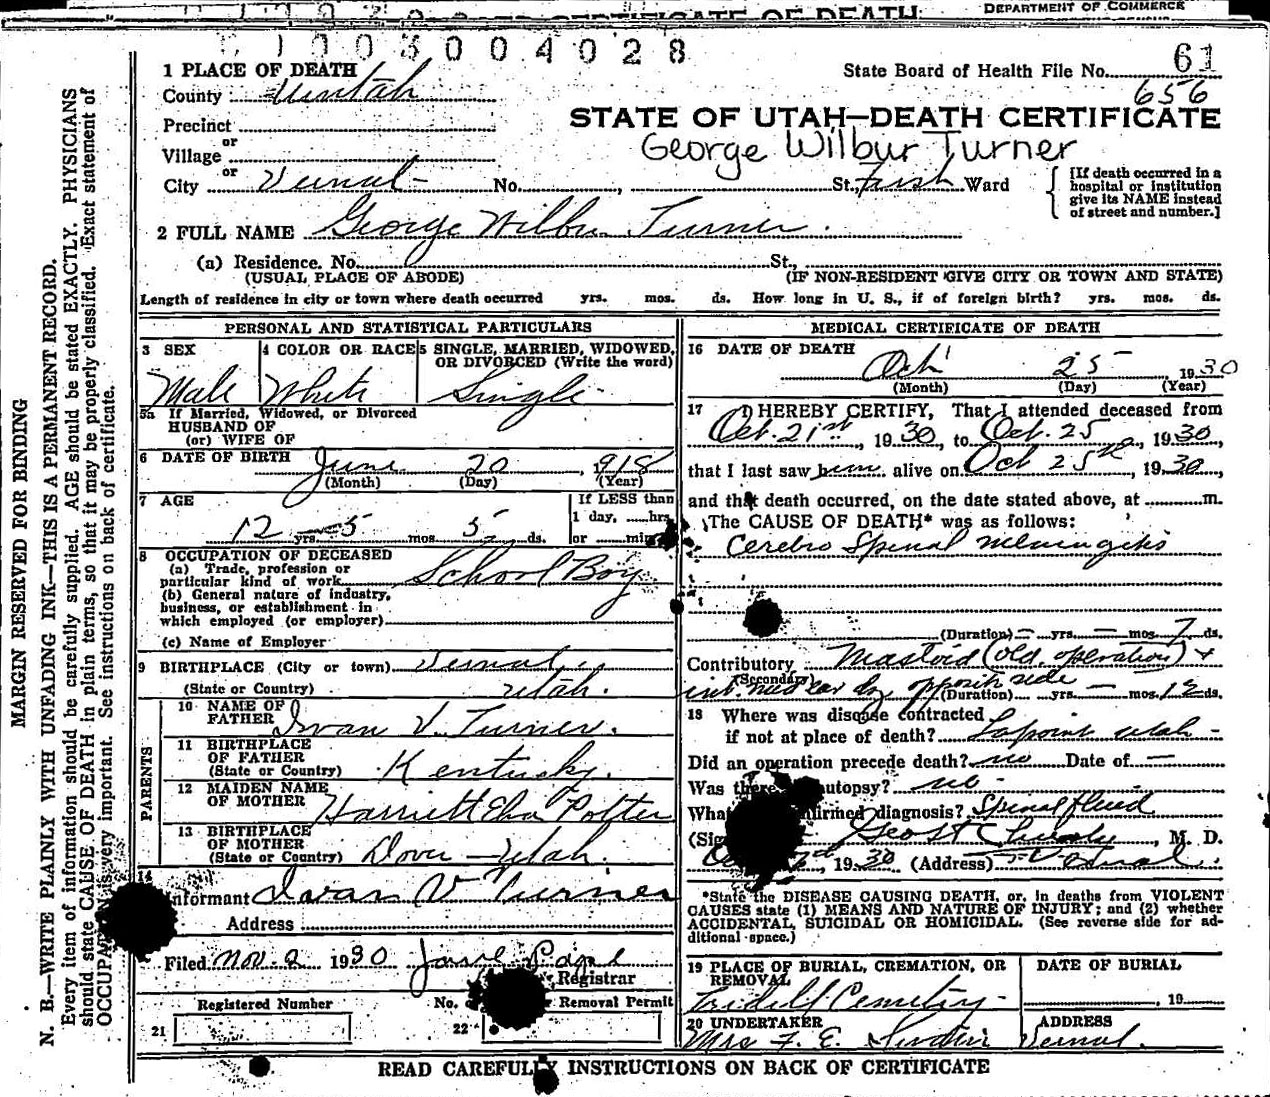 DEPARTMENT OF COMMERCE
CERTIFICATE OF DEATH
003004028
61
1 PLACE OF DEATH
State Board of Health File No.
656
County Uintah
STATE OF UTAH—DEATH CERTIFICATE
Precinct
or
George Wilbur Turner
Village
or
City Vernal No. , St., First Ward
[If death occurred in a hospital or institution give its NAME instead of street and number.]
2 FULL NAME George Wilbur Turner.
(a) Residence. No. St.,
(USUAL PLACE OF ABODE) (IF NON-RESIDENT GIVE CITY OR TOWN AND STATE)
Length of residence in city or town where death occurred yrs. mos. ds. How long in U. S., if of foreign birth? yrs. mos. ds.
PERSONAL AND STATISTICAL PARTICULARS
3 SEX 4 COLOR OR RACE 5 SINGLE, MARRIED, WIDOWED,
OR DIVORCED (Write the word)
Male White Single
5a If Married, Widowed, or Divorced
HUSBAND OF
(or) WIFE OF
6 DATE OF BIRTH June 20, 1918
(Month) (Day) (Year)
7 AGE
If LESS than
1 day, hrs.
12 yrs. 5 mos. 5 ds. or min.
8 OCCUPATION OF DECEASED
(a) Trade, profession or
particular kind of work School Boy
(b) General nature of industry,
business, or establishment in
which employed (or employer)
(c) Name of Employer
9 BIRTHPLACE (City or town) Vernal
(State or Country) Utah.
PARENTS
10 NAME OF
FATHER Ivan V. Turner.
11 BIRTHPLACE
OF FATHER
(State or Country) Kentucky.
12 MAIDEN NAME
OF MOTHER Harriett Potter
13 BIRTHPLACE
OF MOTHER
(State or Country) Dover—Utah.
14
Informant Ivan V Turner
Address
Filed Nov. 2 1930
Registrar
Registered Number No. Removal Permit
21 22
MEDICAL CERTIFICATE OF DEATH
16 DATE OF DEATH
Oct 25 1930
(Month) (Day) (Year)
17 I HEREBY CERTIFY, That I attended deceased from
Oct. 21st, 1930, to Oct. 25, 1930,
that I last saw him alive on Oct 25th, 1930,
and that death occurred, on the date stated above, at m.
The CAUSE OF DEATH* was as follows:
Cerebro Spinal Meningitis
(Duration) – yrs. – mos. 7 ds.
Contributory Mastoid (old operation) +
(Secondary)
opposit side
(Duration) yrs. – mos. 12 ds.
18 Where was disease contracted
if not at place of death? Lapoint Utah -
Did an operation precede death? no Date of —
Was there autopsy? no
What confirmed diagnosis? Spinal fluid
M. D.
1930 (Address) Vernal.
*State the DISEASE CAUSING DEATH, or, in deaths from VIOLENT
CAUSES state (1) MEANS AND NATURE OF INJURY; and (2) whether
ACCIDENTAL, SUICIDAL OR HOMICIDAL. (See reverse side for ad-
ditional space.)
19 PLACE OF BURIAL, CREMATION, OR
REMOVAL
DATE OF BURIAL
Tridell Cemetery. , 19
20 UNDERTAKER ADDRESS
Mrs F. E. Vernal.
READ CAREFULLY INSTRUCTIONS ON BACK OF CERTIFICATE
MARGIN RESERVED FOR BINDING
N. B.—WRITE PLAINLY WITH UNFADING INK—THIS IS A PERMANENT RECORD.
Every item of information should be carefully supplied. AGE should be stated EXACTLY. PHYSICIANS
should state CAUSE OF DEATH in plain terms, so that it may be properly classified. Exact statement of
OCCUPATION is very important. See instructions on back of certificate.